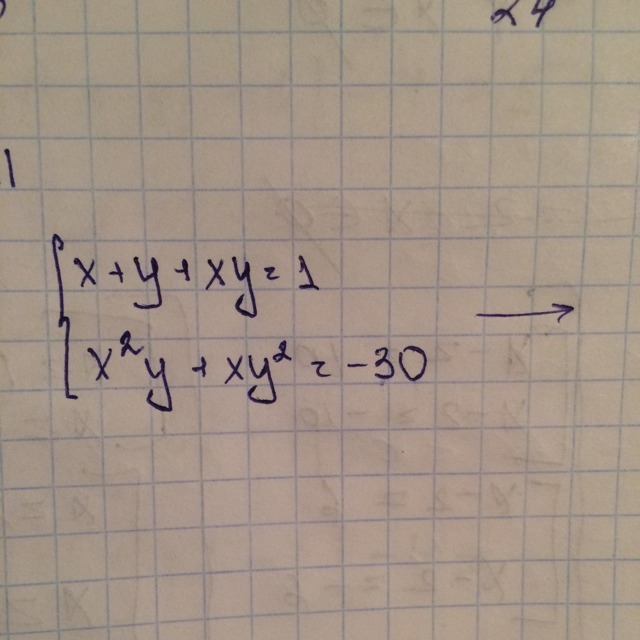 24
1
x + y + xy = 1
x²y + xy² = -30